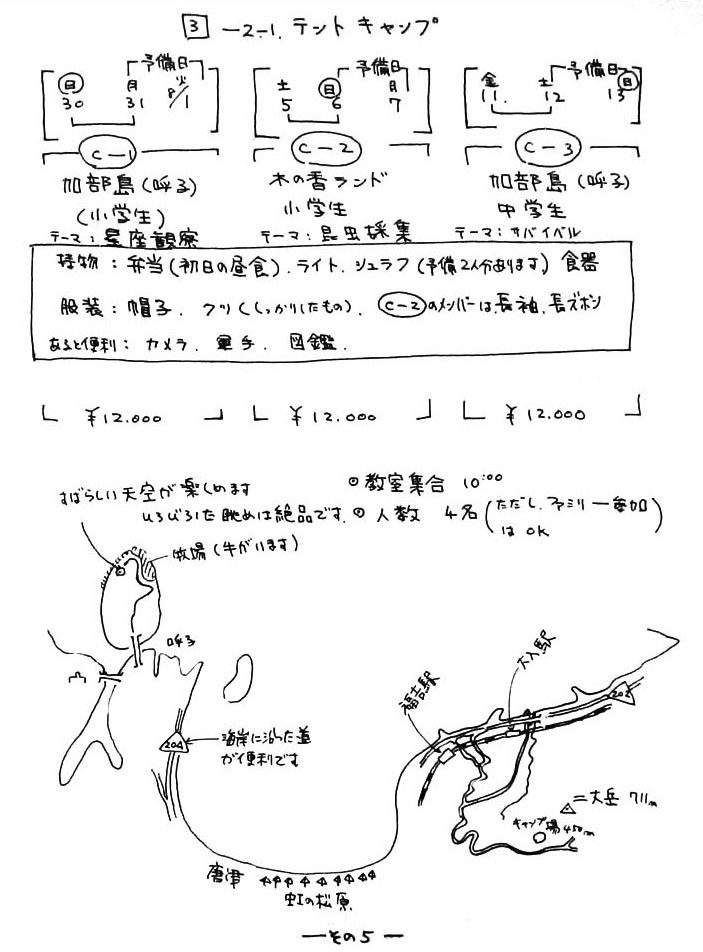 3 -2-1. テント キャンプ
予備日 予備日 予備日
日 月 火 土 日 月 金 土 日
30 31 8/1 5 6 7 11. 12 13
C-1 C-2 C-3
加部島(呼子) 木の香ランド 加部島(呼子)
(小学生) 小学生 中学生
テーマ:星座観察 テーマ:昆虫採集 テーマ:サバイバル
持物:弁当(初日の昼食).ライト.シュラフ(予備2人分あります)食器
服装:帽子.クツ(しっかりしたもの).C-2のメンバーは、長袖、長ズボン
あると便利:カメラ.軍手.図鑑.
¥12.000 ¥12.000 ¥12.000
すばらしい天空が楽しめます
◎教室集合 10:00
ひろびろした眺めは絶品です.
◎人数 4名(ただし、ファミリー参加はOK)
牧場(牛がいます)
呼子
大入駅
福吉駅
202
204
海岸に沿った道
が便利です
二大岳 711m
キャンプ場450m
唐津
虹の松原
―その5―